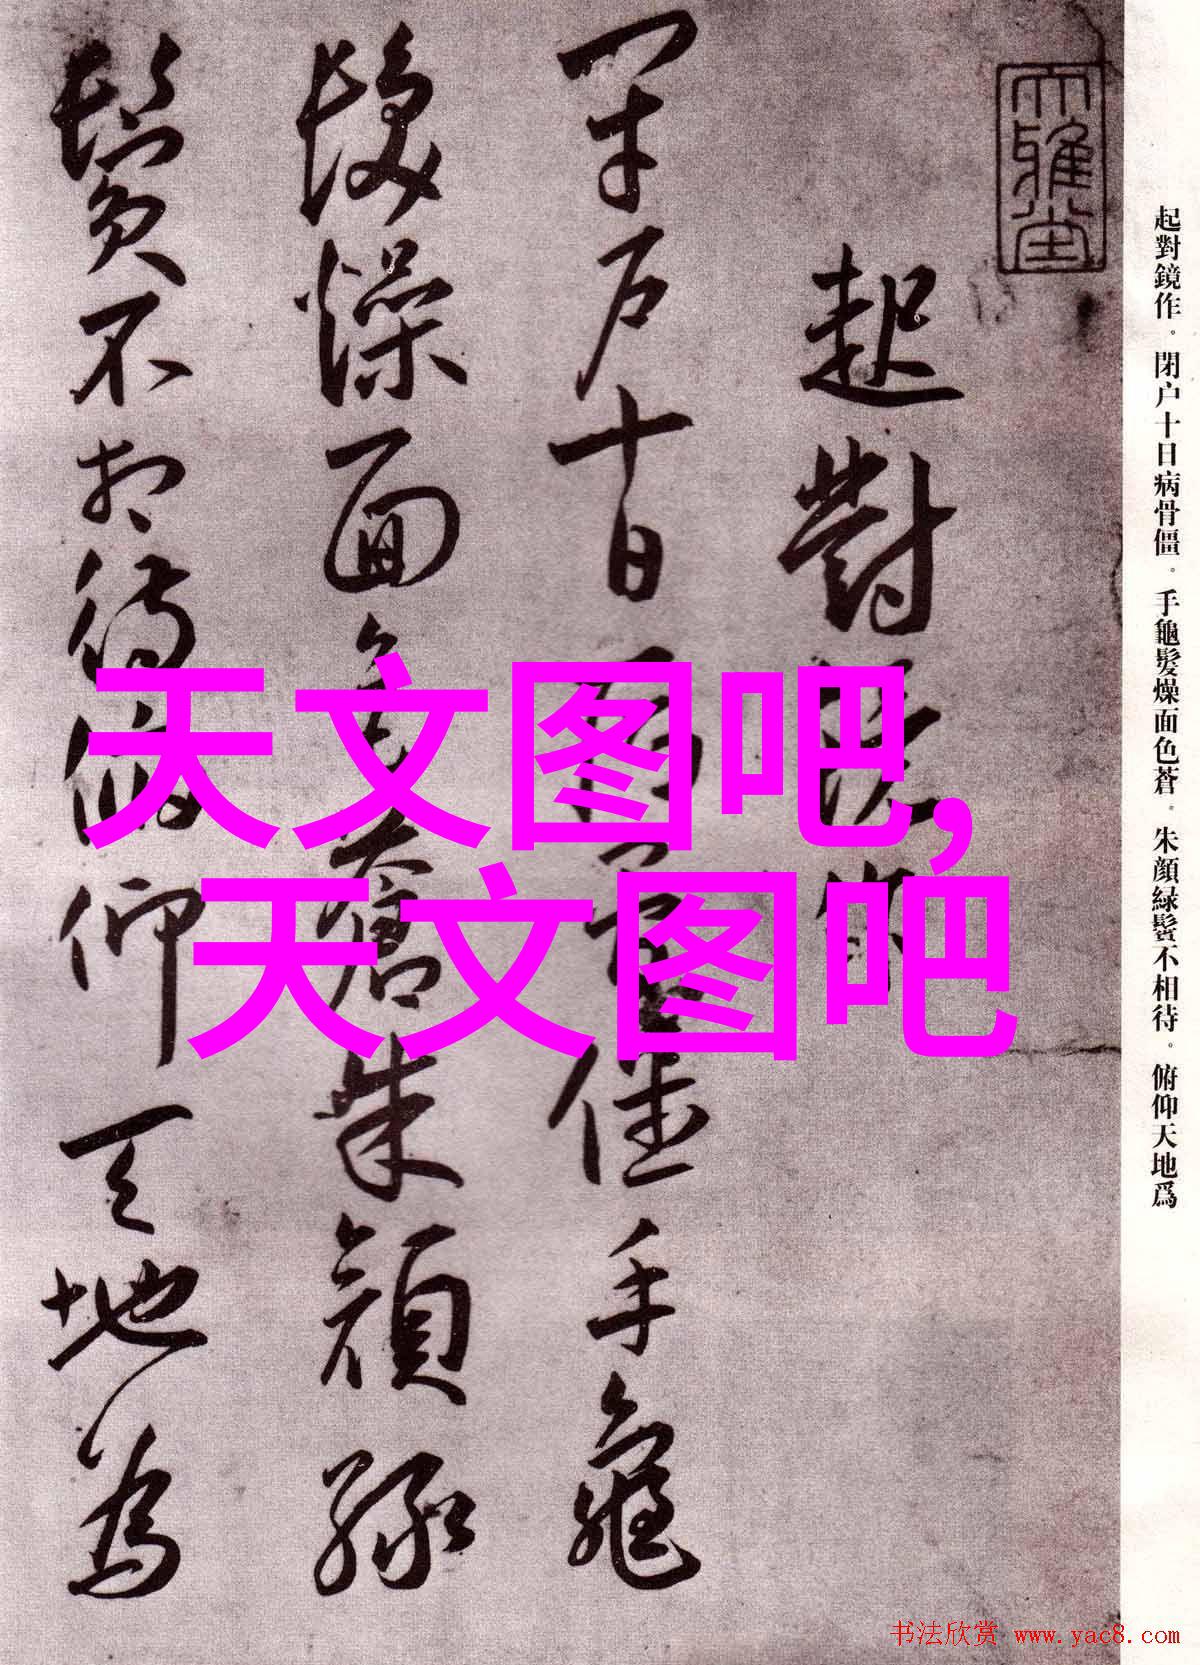 天雅堂
起對鏡作
閉户十日病骨僵手龜
髮燥面色蒼朱顔緑
鬢不相待俯仰天地為
起對鏡作。閉户十日病骨僵。手龜髮燥面色蒼。朱顔緑鬢不相待。俯仰天地爲
天文图吧,
天文图吧
书法欣赏 www.yac8.com